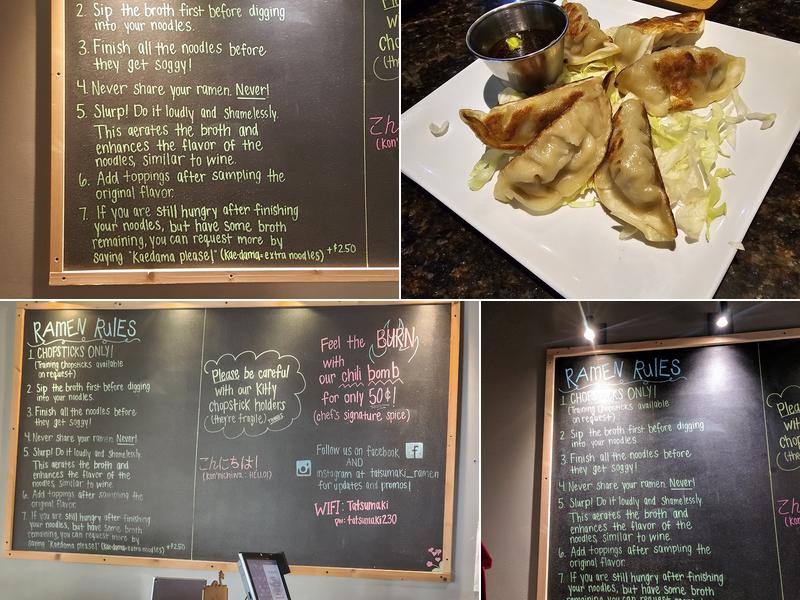 2. Sip the broth first before digging
into your noodles.
3. Finish all the noodles before
they get soggy!
4. Never share your ramen. Never!
5. Slurp! Do it loudly and shamelessly.
This aerates the broth and
enhances the flavor of the
noodles, similar to wine.
6. Add toppings after sampling the
original flavor.
7. If you are still hungry after finishing
your noodles, but have some broth
remaining, you can request more by
saying "Kaedama please!" (kae-dama=extra noodles) +$2.50
RAMEN RULES
1. CHOPSTICKS ONLY!
(Training Chopsticks available
on request)
2. Sip the broth first before digging
into your noodles.
3. Finish all the noodles before
they get soggy!
4. Never share your ramen. Never!
5. Slurp! Do it loudly and shamelessly.
This aerates the broth and
enhances the flavor of the
noodles, similar to wine.
6. Add toppings after sampling the
original flavor.
7. If you are still hungry after finishing
your noodles, but have some broth
remaining, you can request more by
saying "Kaedama please!" (kae-dama=extra noodles) +$2.50
Please be careful
with our Kitty
chopstick holders
(they're fragile)
こんにちは!
(kon'nichiwa : HELLO!)
Feel the BURN
with
our chili bomb
for only 50¢!
(chef's signature spice)
Follow us on facebook f
AND
instagram at tatsumaki_ramen
for updates and promos!
WIFI: Tatsumaki
pw: tatsumaki230
RAMEN RULES
1. CHOPSTICKS ONLY!
(Training Chopsticks available
on request)
2. Sip the broth first before digging
into your noodles.
3. Finish all the noodles before
they get soggy!
4. Never share your ramen. Never!
5. Slurp! Do it loudly and shamelessly.
This aerates the broth and
enhances the flavor of the
noodles, similar to wine.
6. Add toppings after sampling the
original flavor.
7. If you are still hungry after finishing
your noodles, but have some broth